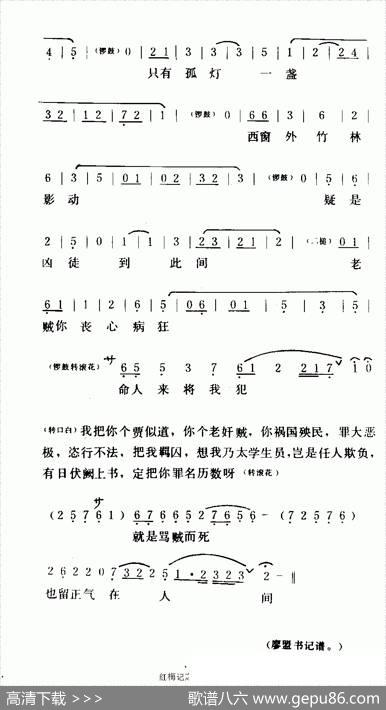 4 5 (锣鼓) 0 2 1 3 3 3 5 1 2 2 4
只有 孤 灯 一 盏
3 2 1 2 7 2 1 (锣鼓) 0 6 6 3 6 2
西窗 外 竹 林
6 3 5 0 1 0 2 3 2 1 2 3 (锣鼓) 0 5 6
影 动 疑 是
2 5 0 1 1 3 2 3 2 1 2 (二槌) 0 1
凶 徒 到 此 间 老
6 1 1 2 1 5 0 6 0 1 5 3 5
贼 你 丧 心 病 狂
(锣鼓转滚花) サ 6 5 5 3 7 6 1 2 2 1 7 1 0
命 人 来 将 我 犯
(转口白) 我把你个贾似道，你个老奸贼，你祸国殃民，罪大恶
极，恣行不法，把我羁囚，想我乃太学生员，岂是任人欺负，
有日伏阙上书，定把你罪名历数呀 (转滚花)
サ
(2 5 7 6 1) 6 7 6 6 5 2 7 6 5 6 - (7 2 5 7 6)
就是骂贼而死
2 6 2 2 0 7 3 2 2 5 1 · 2 3 2 3 2 -
也留正气 在 人 间
(廖盟书记谱。)
红梅记
高清下载 >>>
歌谱八六 www.gepu86.com